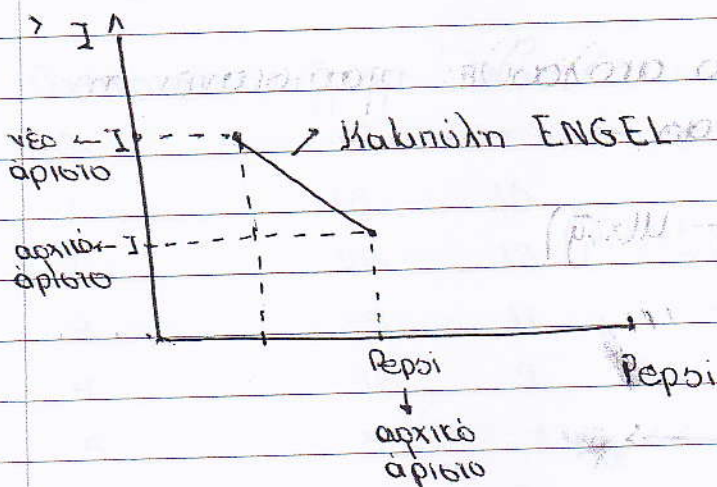 I
νέο ← I
άριστο
Καμπύλη ENGEL
αρχικό ← I
άριστο
Pepsi
Pepsi
αρχικό
άριστο